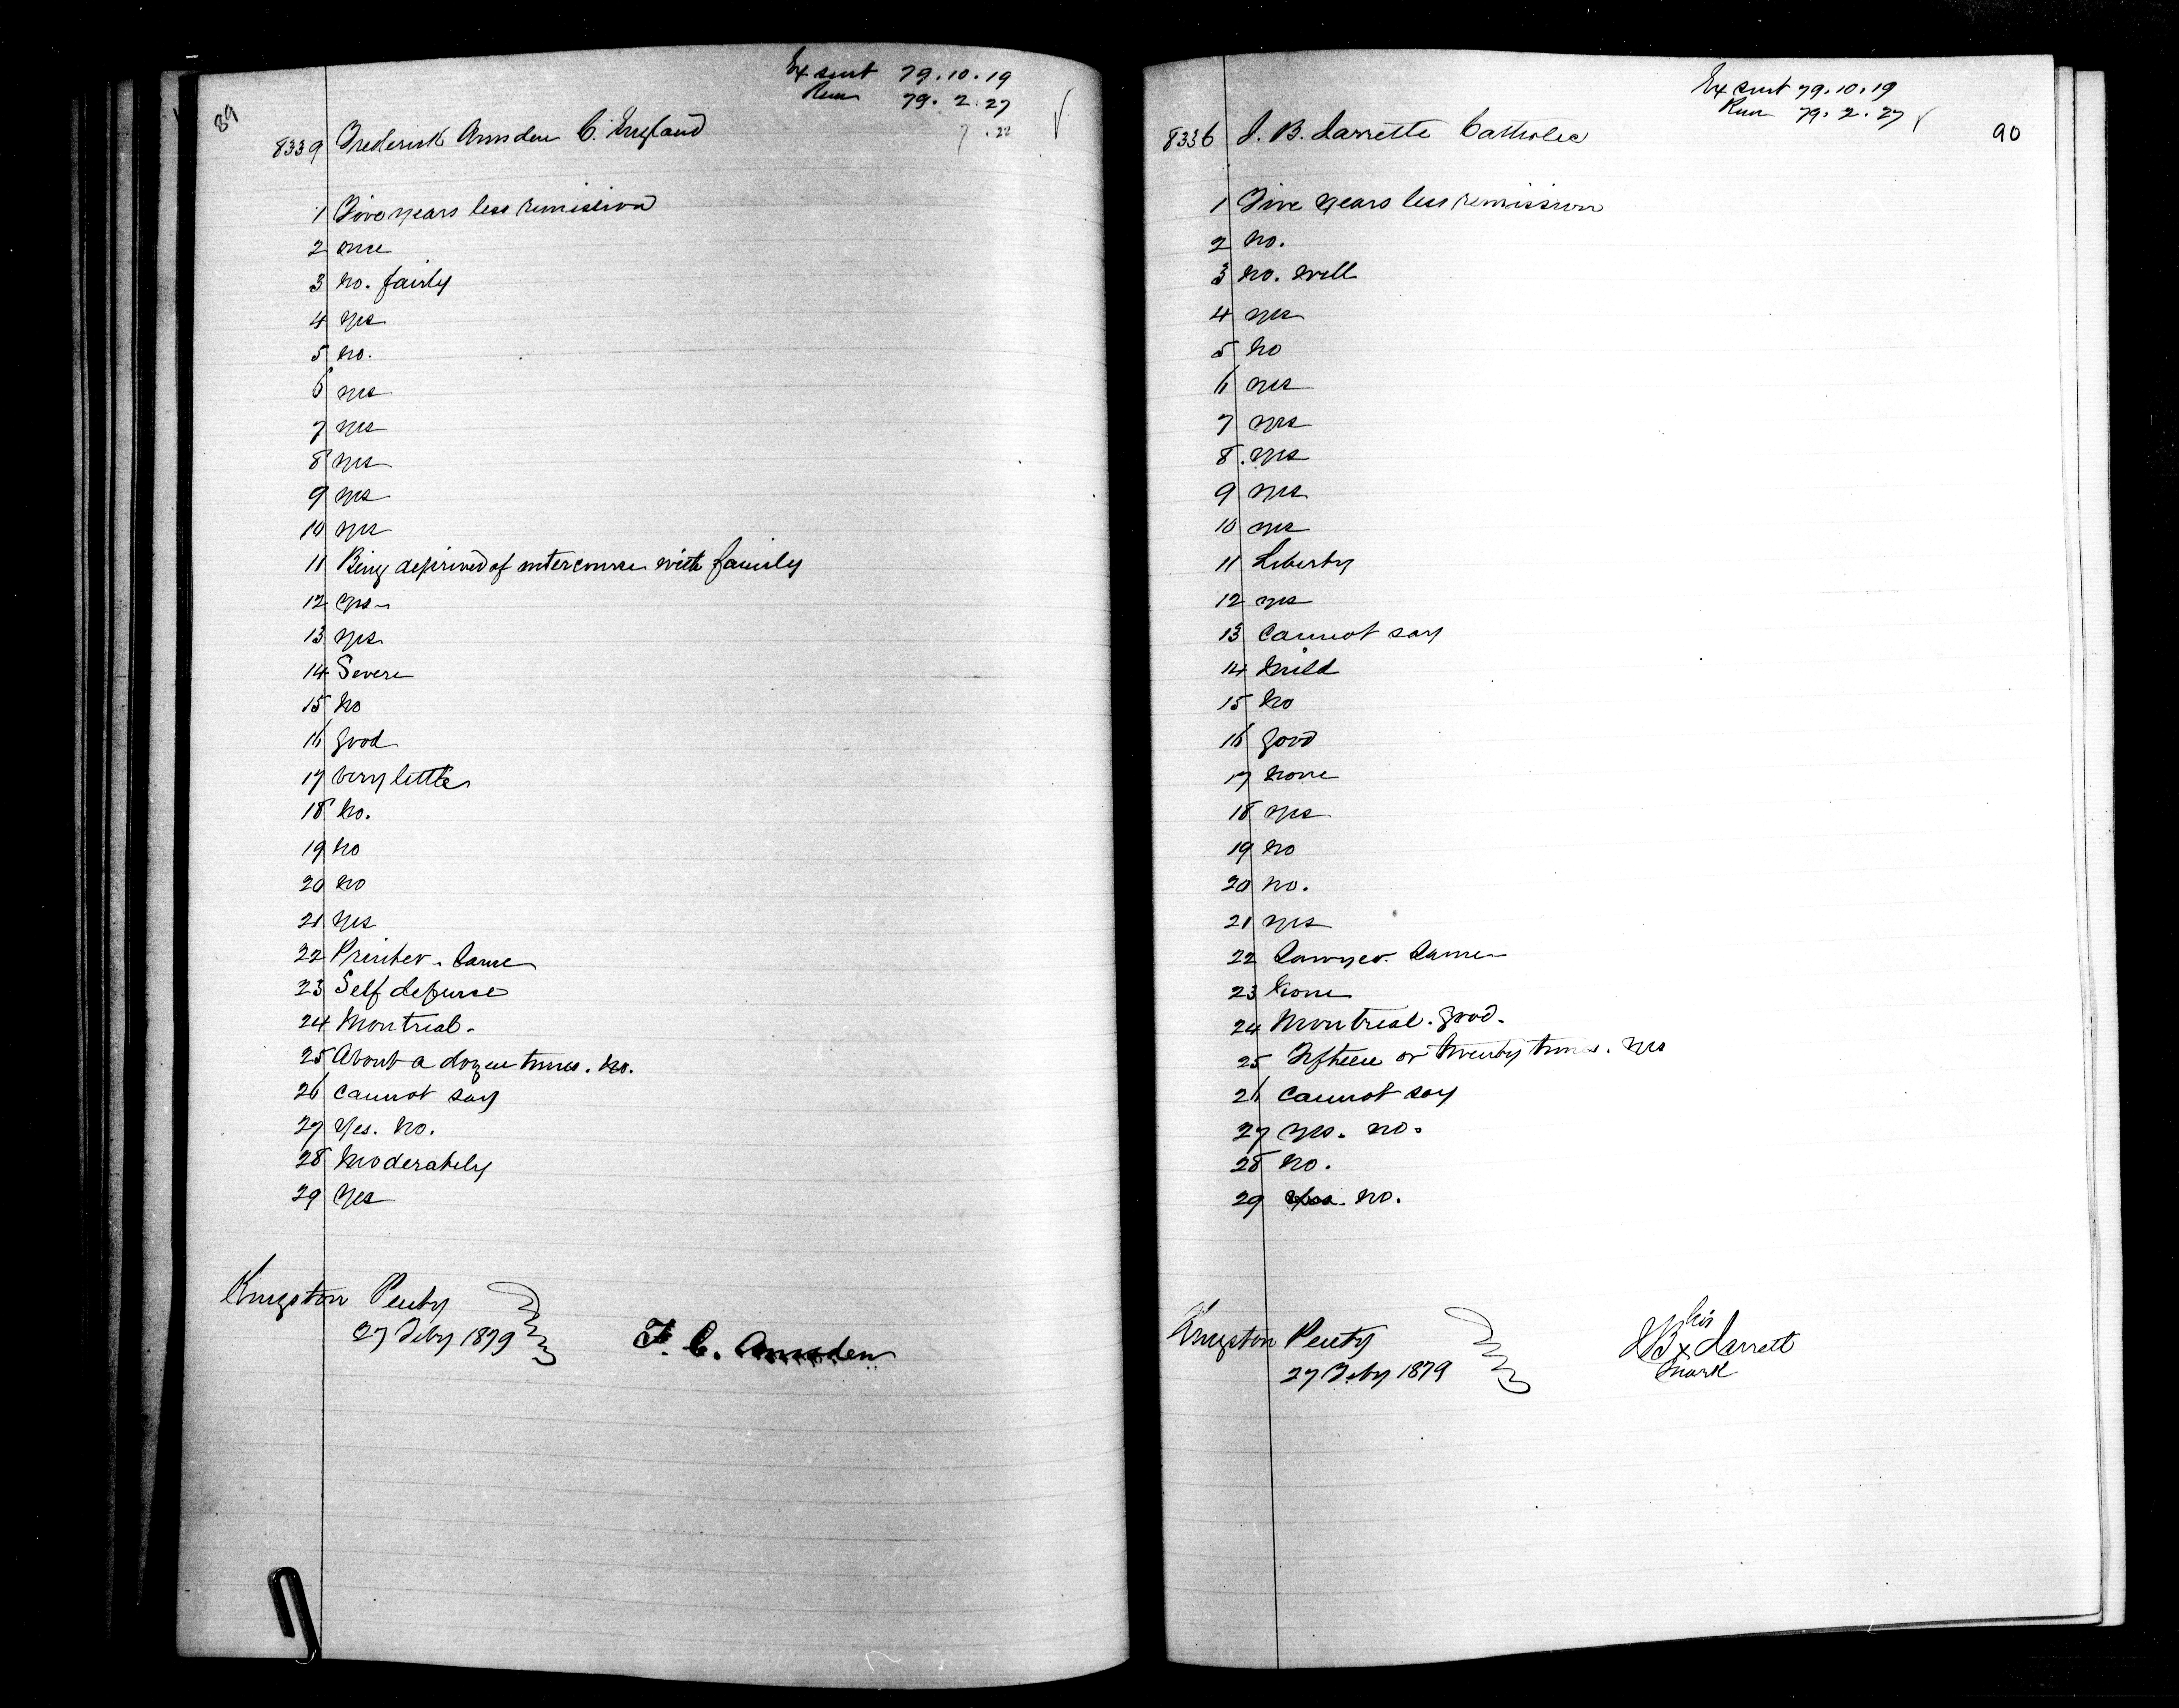 89
Ex sent 79.10.19
Rem 79.2.27
8339 Frederick Amsden C. England
1 Five years less remission
2 once
3 no. fairly
4 yes
5 no.
6 yes
7 yes
8 yes
9 yes
10 yes
11 Being deprived of intercourse with family
12 yes
13 yes
14 Severe
15 no
16 good
17 very little
18 no.
19 no
20 no
21 yes
22 Printer. Same
23 Self defense
24 Montreal.
25 About a dozen times. no.
26 cannot say
27 Yes. no.
28 Moderately
29 Yes
Kingston Penty
27 Feby 1879
F. C. Amsden
90
Ex sent 79.10.19
Rem 79.2.27
8336 J. B. Larrette Catholic
1 Five years less remission
2 no.
3 no. well
4 yes
5 no
6 yes
7 yes
8 yes
9 yes
10 yes
11 Liberty
12 yes
13 cannot say
14 mild
15 no
16 good
17 none
18 yes
19 no
20 no.
21 yes
22 Sawyer. Same
23 none
24 Montreal. good.
25 Fifteen or twenty times. yes
26 cannot say
27 yes. no.
28 no.
29 yes. no.
Kingston Penty
27 Feby 1879
his
JB x Larrett
mark